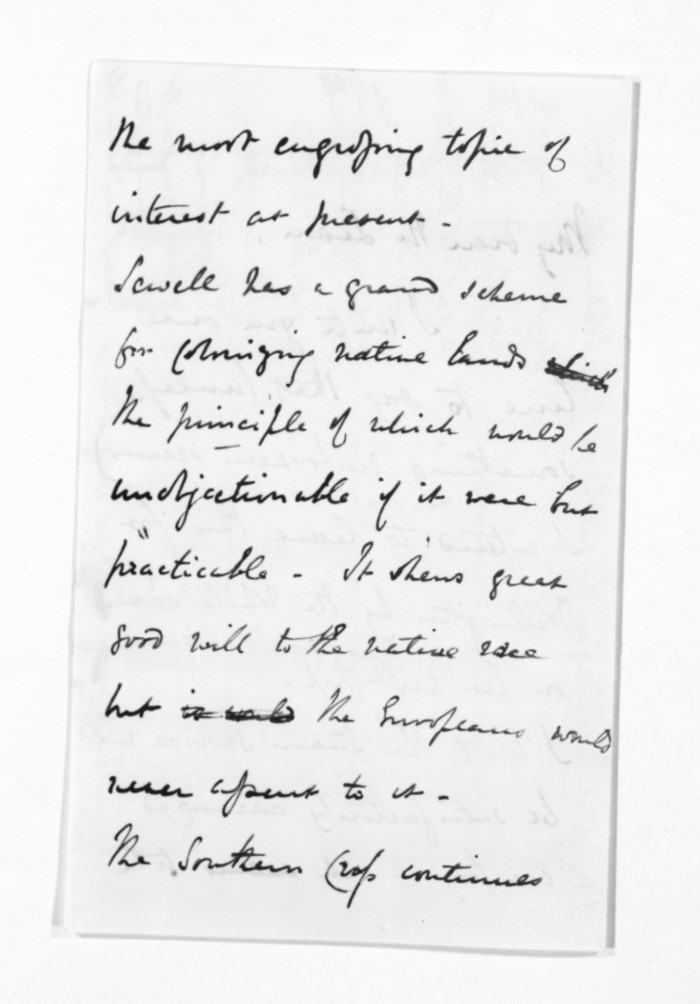 the most engrossing topic of
interest at present -
Sewell has a grand scheme
for Colonizing native lands which
the principle of which would be
unobjectionable if it were but
practicable - It shews great
good will to the native race
but it would the Europeans would
never assent to it -
The Southern Cross continues